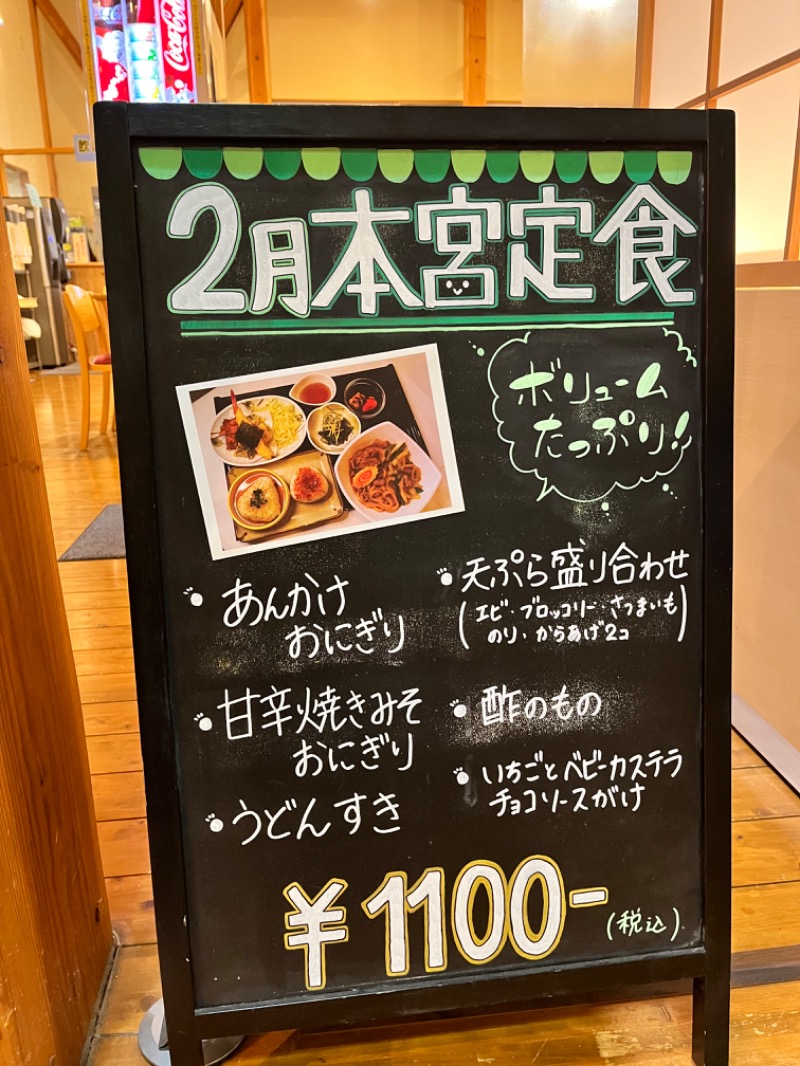 Coca-Cola
2月本宮定食
ボリューム
たっぷり!
・あんかけ
おにぎり
・甘辛焼きみそ
おにぎり
・うどんすき
・天ぷら盛り合わせ
(エビ・ブロッコリー・さつまいも
のり・からあげ2コ)
・酢のもの
・いちごとベビーカステラ
チョコソースがけ
¥1100-
(税込)